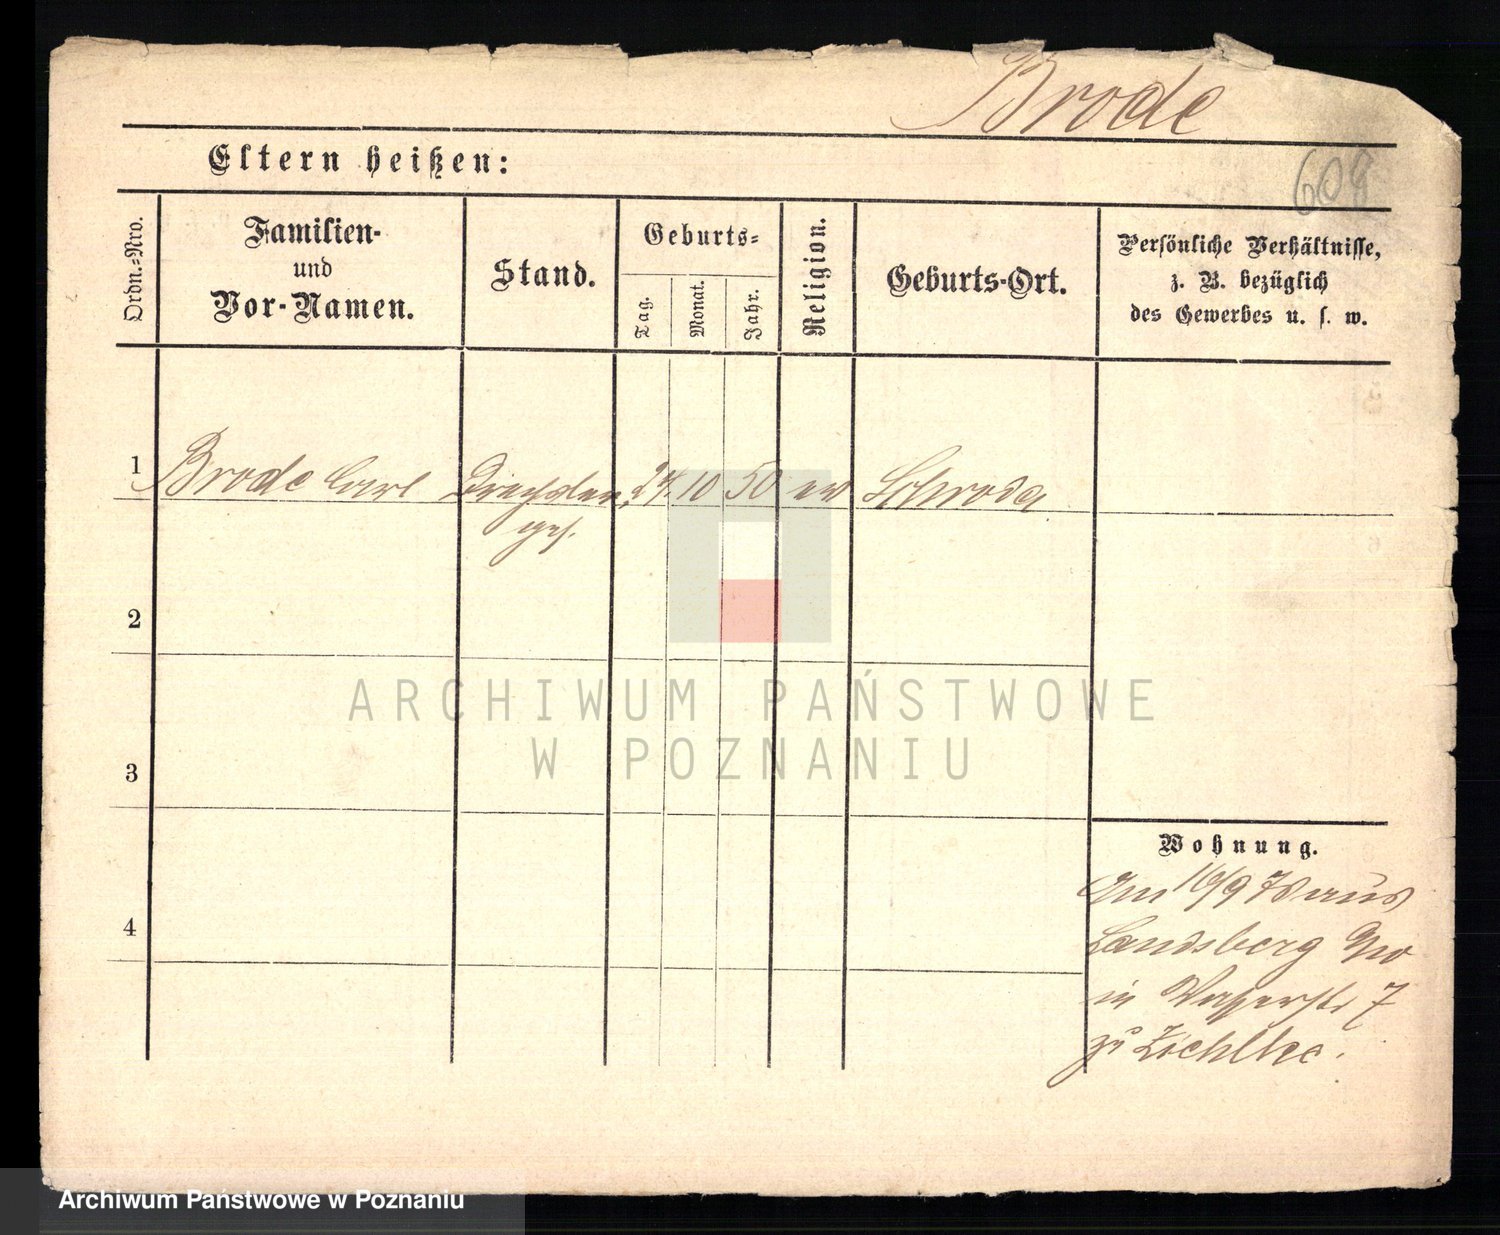 Brode
Eltern heißen:
608
Ordn.-Nro.
Familien-
und
Vor-Namen.
Stand.
Geburts-
Tag.
Monat.
Jahr.
Religion.
Geburts-Ort.
Persönliche Verhältnisse,
z. B. bezüglich
des Gewerbes u. s. w.
1
Brode Carl Drechsler 24. 10 50 ev Schroda
ges.
2
3
4
Wohnung.
Am 16/9 78 aus
Landsberg
in Wasserstr 7
zu
ARCHIWUM PAŃSTWOWE
W POZNANIU
Archiwum Państwowe w Poznaniu